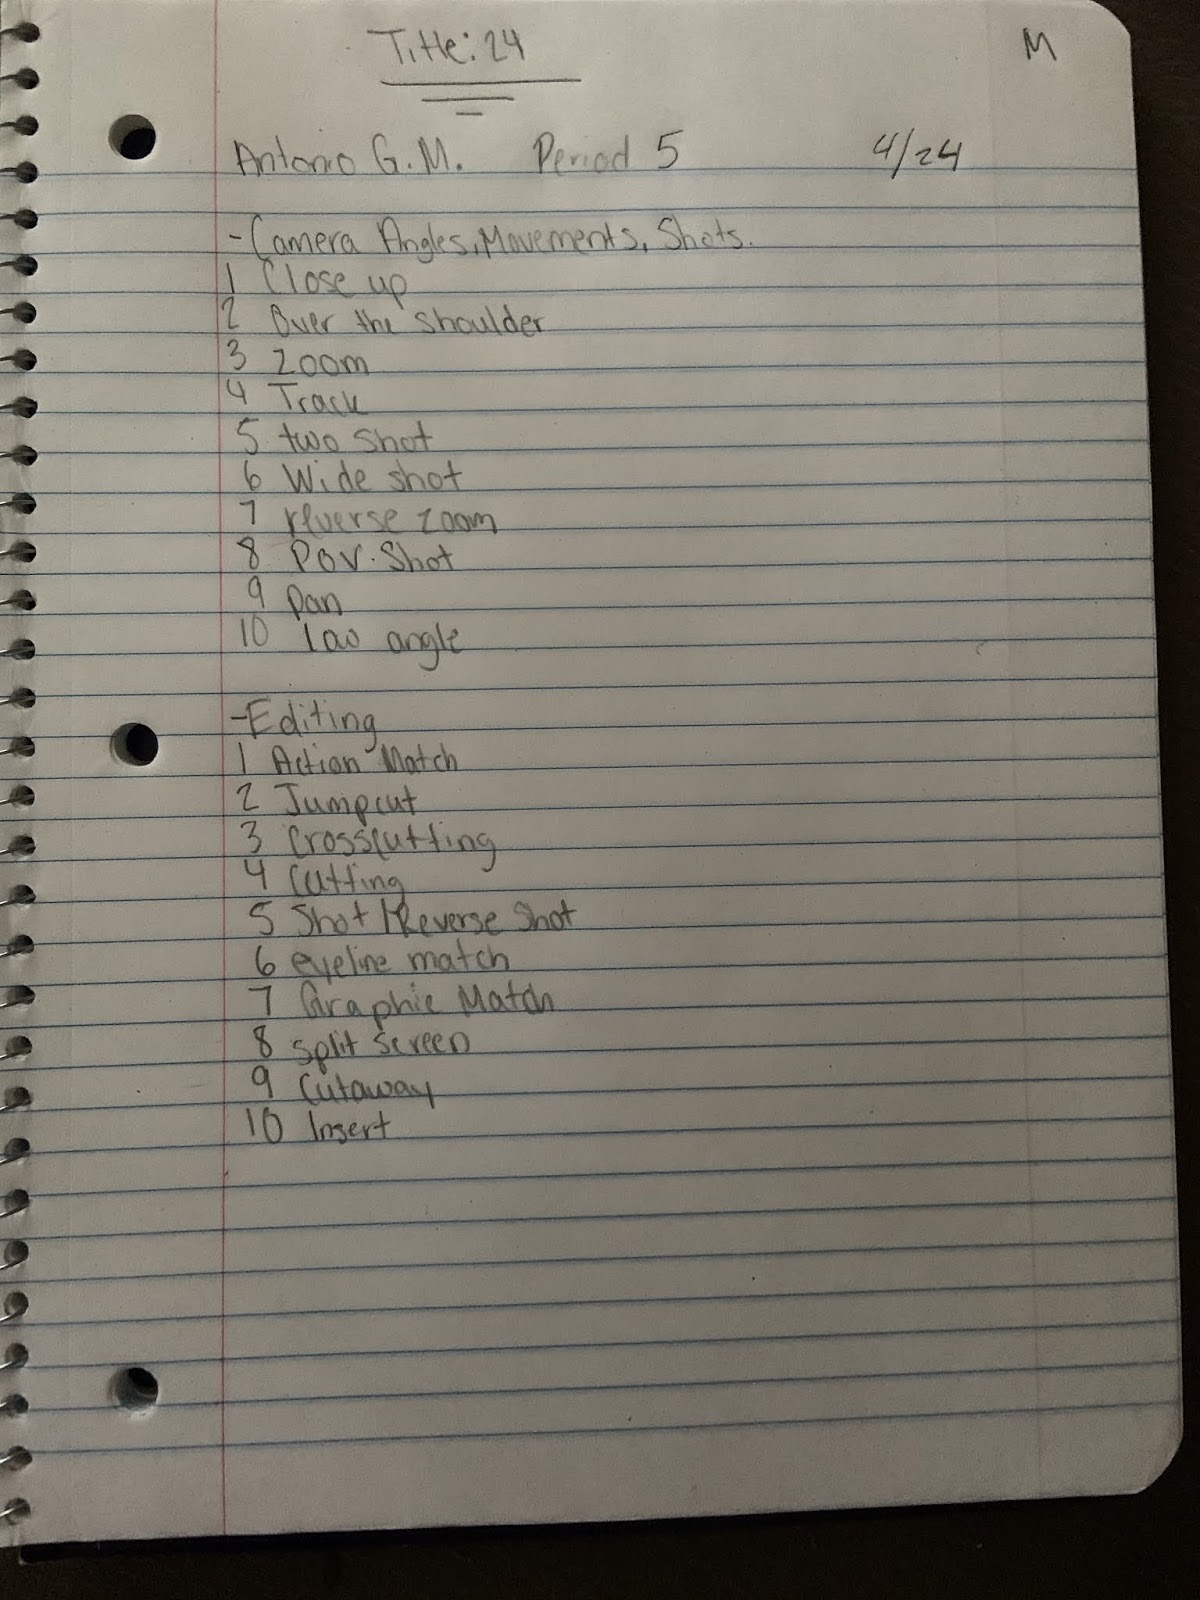 Title: 24
M
Antonio G.M. Period 5 4/24
-Camera Angles, Movements, Shots.
1 Close up
2 Over the shoulder
3 Zoom
4 Track
5 two shot
6 Wide shot
7 reverse zoom
8 POV. Shot
9 Pan
10 low angle
-Editing
1 Action Match
2 Jumpcut
3 Crosscutting
4 Cutting
5 Shot/Reverse Shot
6 eyeline match
7 Graphic Match
8 Split Screen
9 Cutaway
10 Insert